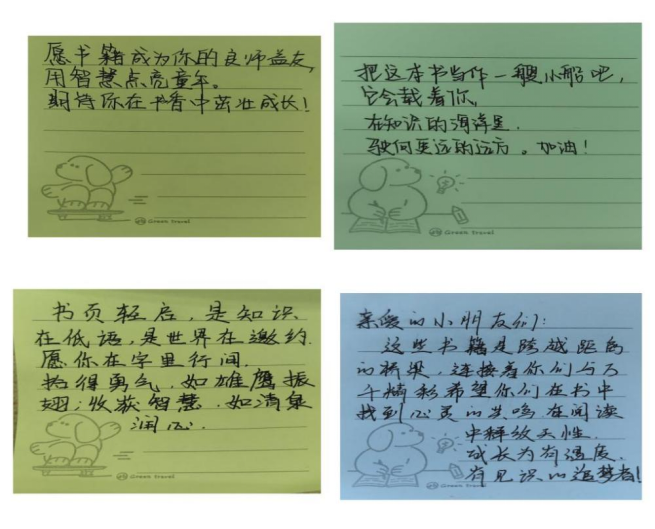 愿书籍成为你的良师益友,
用智慧点亮童年。
期待你在书香中茁壮成长!
Green Travel
把这本书当作一艘小船吧,
它会载着你,
在知识的海洋里,
驶向更远的远方。加油!
Green Travel
书页轻启,是知识
在低语,是世界在邀约.
愿你在字里行间.
拾得勇气,如雄鹰振
翅;收获智慧,如清泉
润心.
Green Travel
亲爱的小朋友们:
这些书籍是跨越距离
的桥梁,连接着你们与万
千精彩希望你们在书中
找到心灵的共鸣.在阅读
中释放天性.
成长为有温度.
有见识的追梦者!
Green Travel